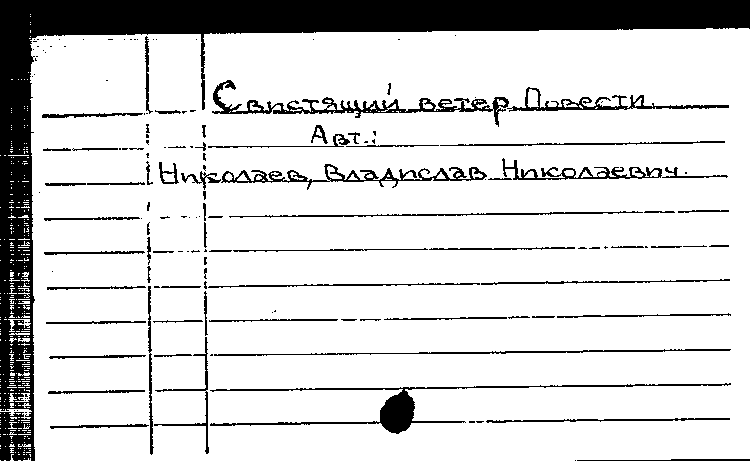 Свистящий ветер. Повести.
Авт.:
Николаев, Владислав Николаевич.